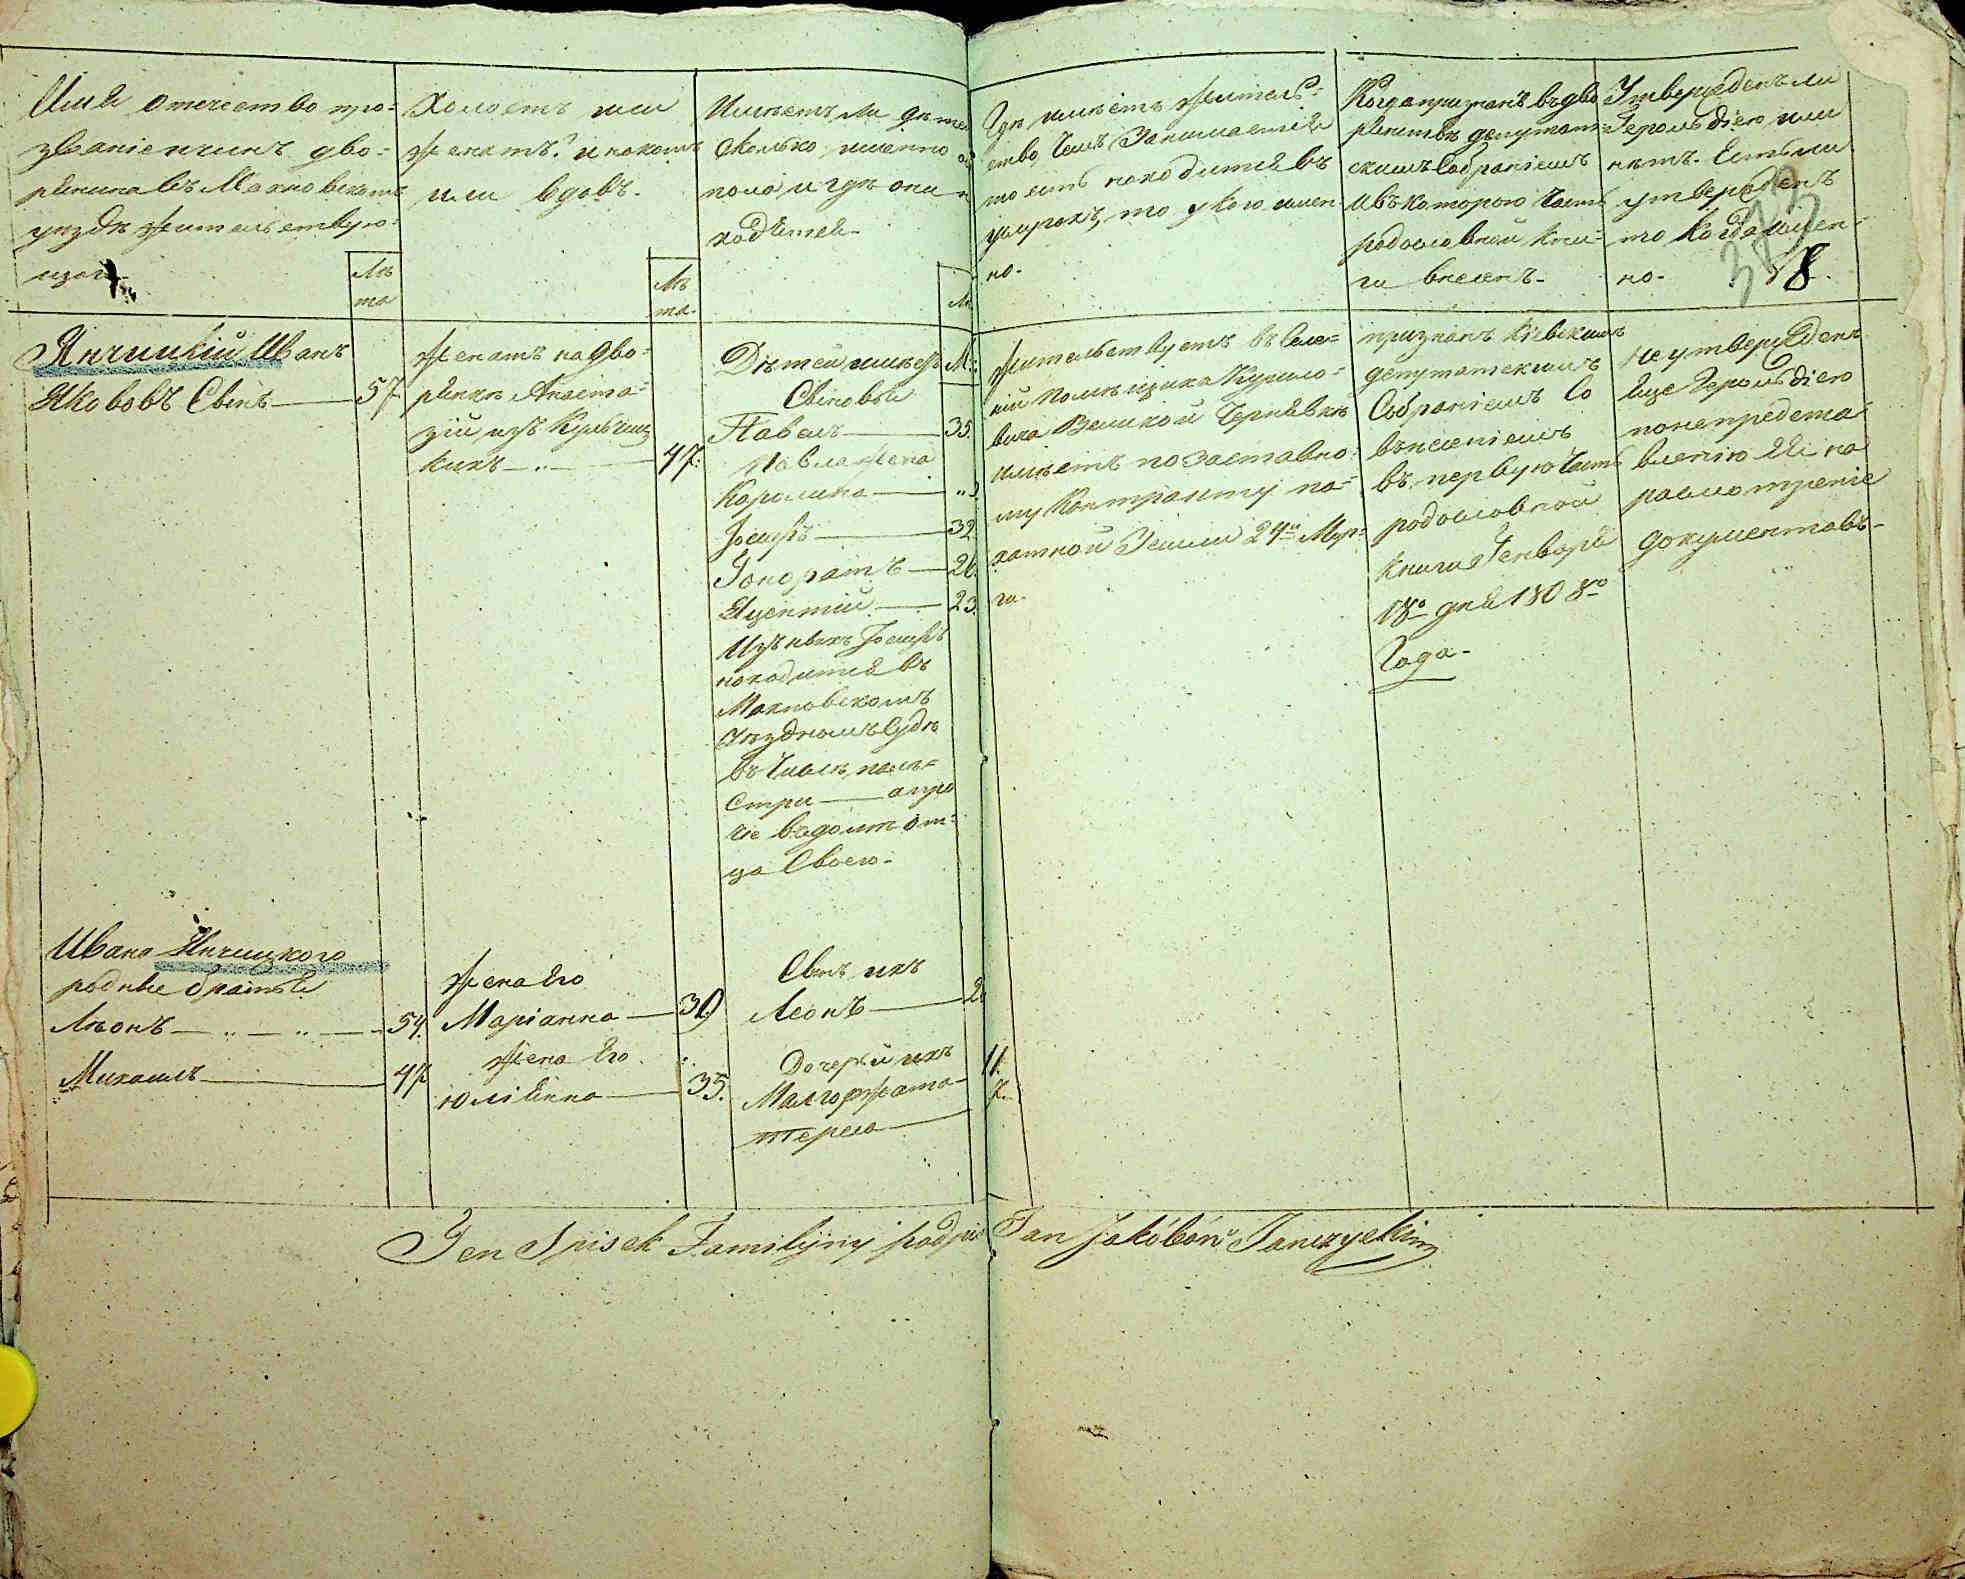 Имя отечество про=
званіе и чинъ дво=
рянина въ Махновскомъ
уездѣ жительствую=
щаго
Лѣ
та
Холостъ или
женатъ? и на комъ
или вдовъ.
Лѣ
та.
Имѣетъ ли дѣтей
сколько именно
пола и гдѣ они
ходѣтся
Гдѣ имѣетъ житель=
ство, чемъ занимается
то есть находится въ
услугахъ, то у кого имен
но.
Когда признанъ въ дво
рянствѣ депутат
скимъ Собраніемъ
и въ которою часть
родословной кни=
ги внесенъ.
Утвержденъ ли
Герольдіею или
нѣтъ. Естьли
утвержденъ
то когда имен=
но.
373
8.
Янчицкій Иванъ
Яковъ Сынъ 57
Женатъ на дво=
рянкѣ Анаста=
зіи изъ Кульчиц
кихъ 47.
Дѣтей имѣетъ
Сыновья
Павелъ 35.
Павла жена
Каролина
Іосифъ 32
Гоноратъ 26.
Яцентій 23.
Изъ ныхъ Іосифъ
находится въ
Махновскомъ
Уѣздномъ Судѣ
въ числѣ
а про
чіе въ домѣ от=
ца Своего
Жительствуетъ въ Селе=
ніи помѣщика Курило=
вича Великой Чернявкѣ
имѣетъ по заставно=
му контракту па=
хатной Земли 24 Мор=
га.
признанъ Кіевскимъ
депутатскимъ
Собраніемъ Со
внесеніемъ
въ первую часть
родословной
книги Генваря
18го дня 1808го
Года
Не утвержденъ
Еще Герольдіею
по непредста=
вленію Ея на
разсмотреніе
документовъ
Ивана Янчицкого
родные братья
Лѣонъ 54.
Жена Его
Маріанна 30
Сынъ ихъ
Леонъ 2
Михаилъ 47
Жена Его
Юліянна 35.
Дочерьи ихъ
Малгоржата 11.
Тереса 7.
Ten Spisek Familijny podpis Jan Jakóbów Janczycki